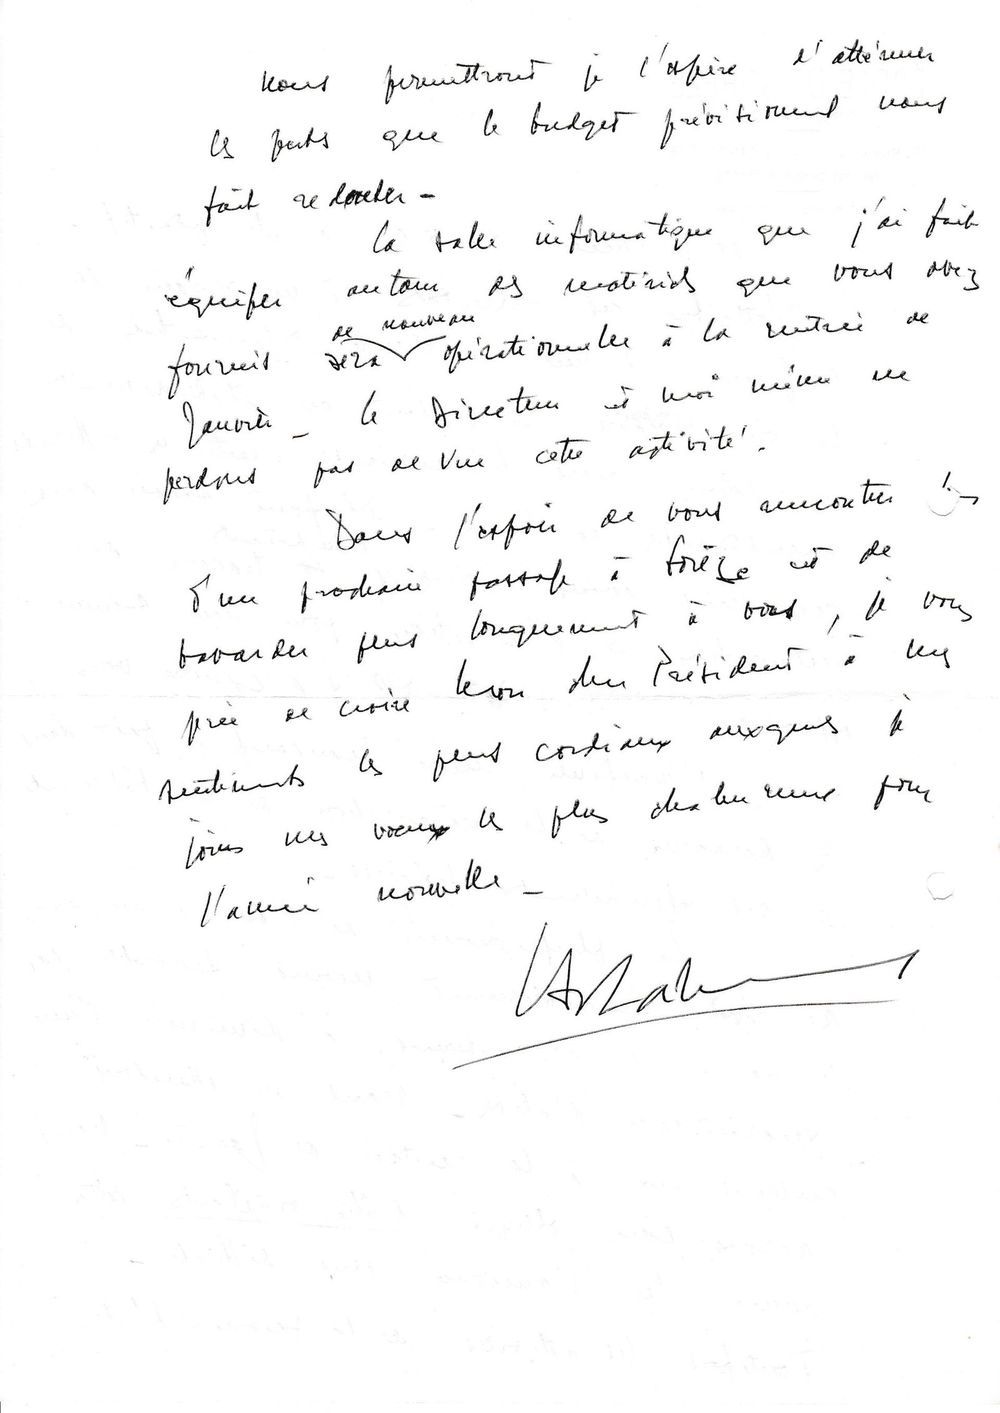 nous permettront je l'espère d'atténuer
les pertes que le budget prévisionnel nous
fait redouter -
La salle informatique que j'ai fait
équiper autour des matériels que vous avez
fournis sera de nouveau opérationnelle à la rentrée de
Janvier - Le Directeur et moi même ne
perdons pas de vue cette activité.
Dans l'espoir de vous rencontrer lors
d'un prochain passage à Sorèze et de
bavarder plus longuement à vous, je vous
prie de croire Mon cher Président à mes
sentiments les plus cordiaux auxquels je
joins mes voeux les plus chaleureux pour
l'année nouvelle -